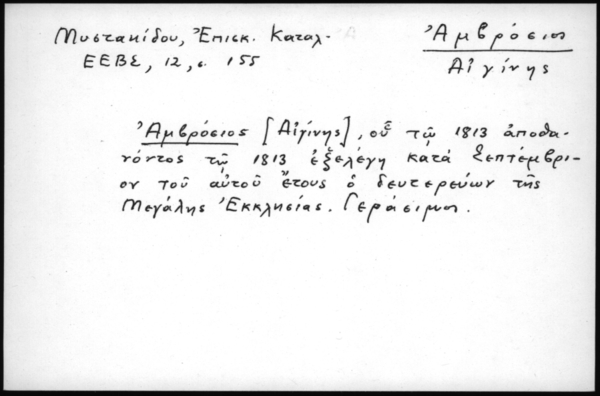 Μυστακίδου, Ἐπισκ. Καταλ.
ΕΕΒΣ, 12, σ. 155
Ἀμβρόσιος
Αἰγίνης
Ἀμβρόσιος [Αἰγίνης], οὗ τῷ 1813 ἀποθα-
νόντος τῷ 1813 ἐξελέγη κατά Σεπτέμβρι-
ον τοῦ αὐτοῦ ἔτους ὁ δευτερεύων τῆς
Μεγάλης Ἐκκλησίας. Γεράσιμος.